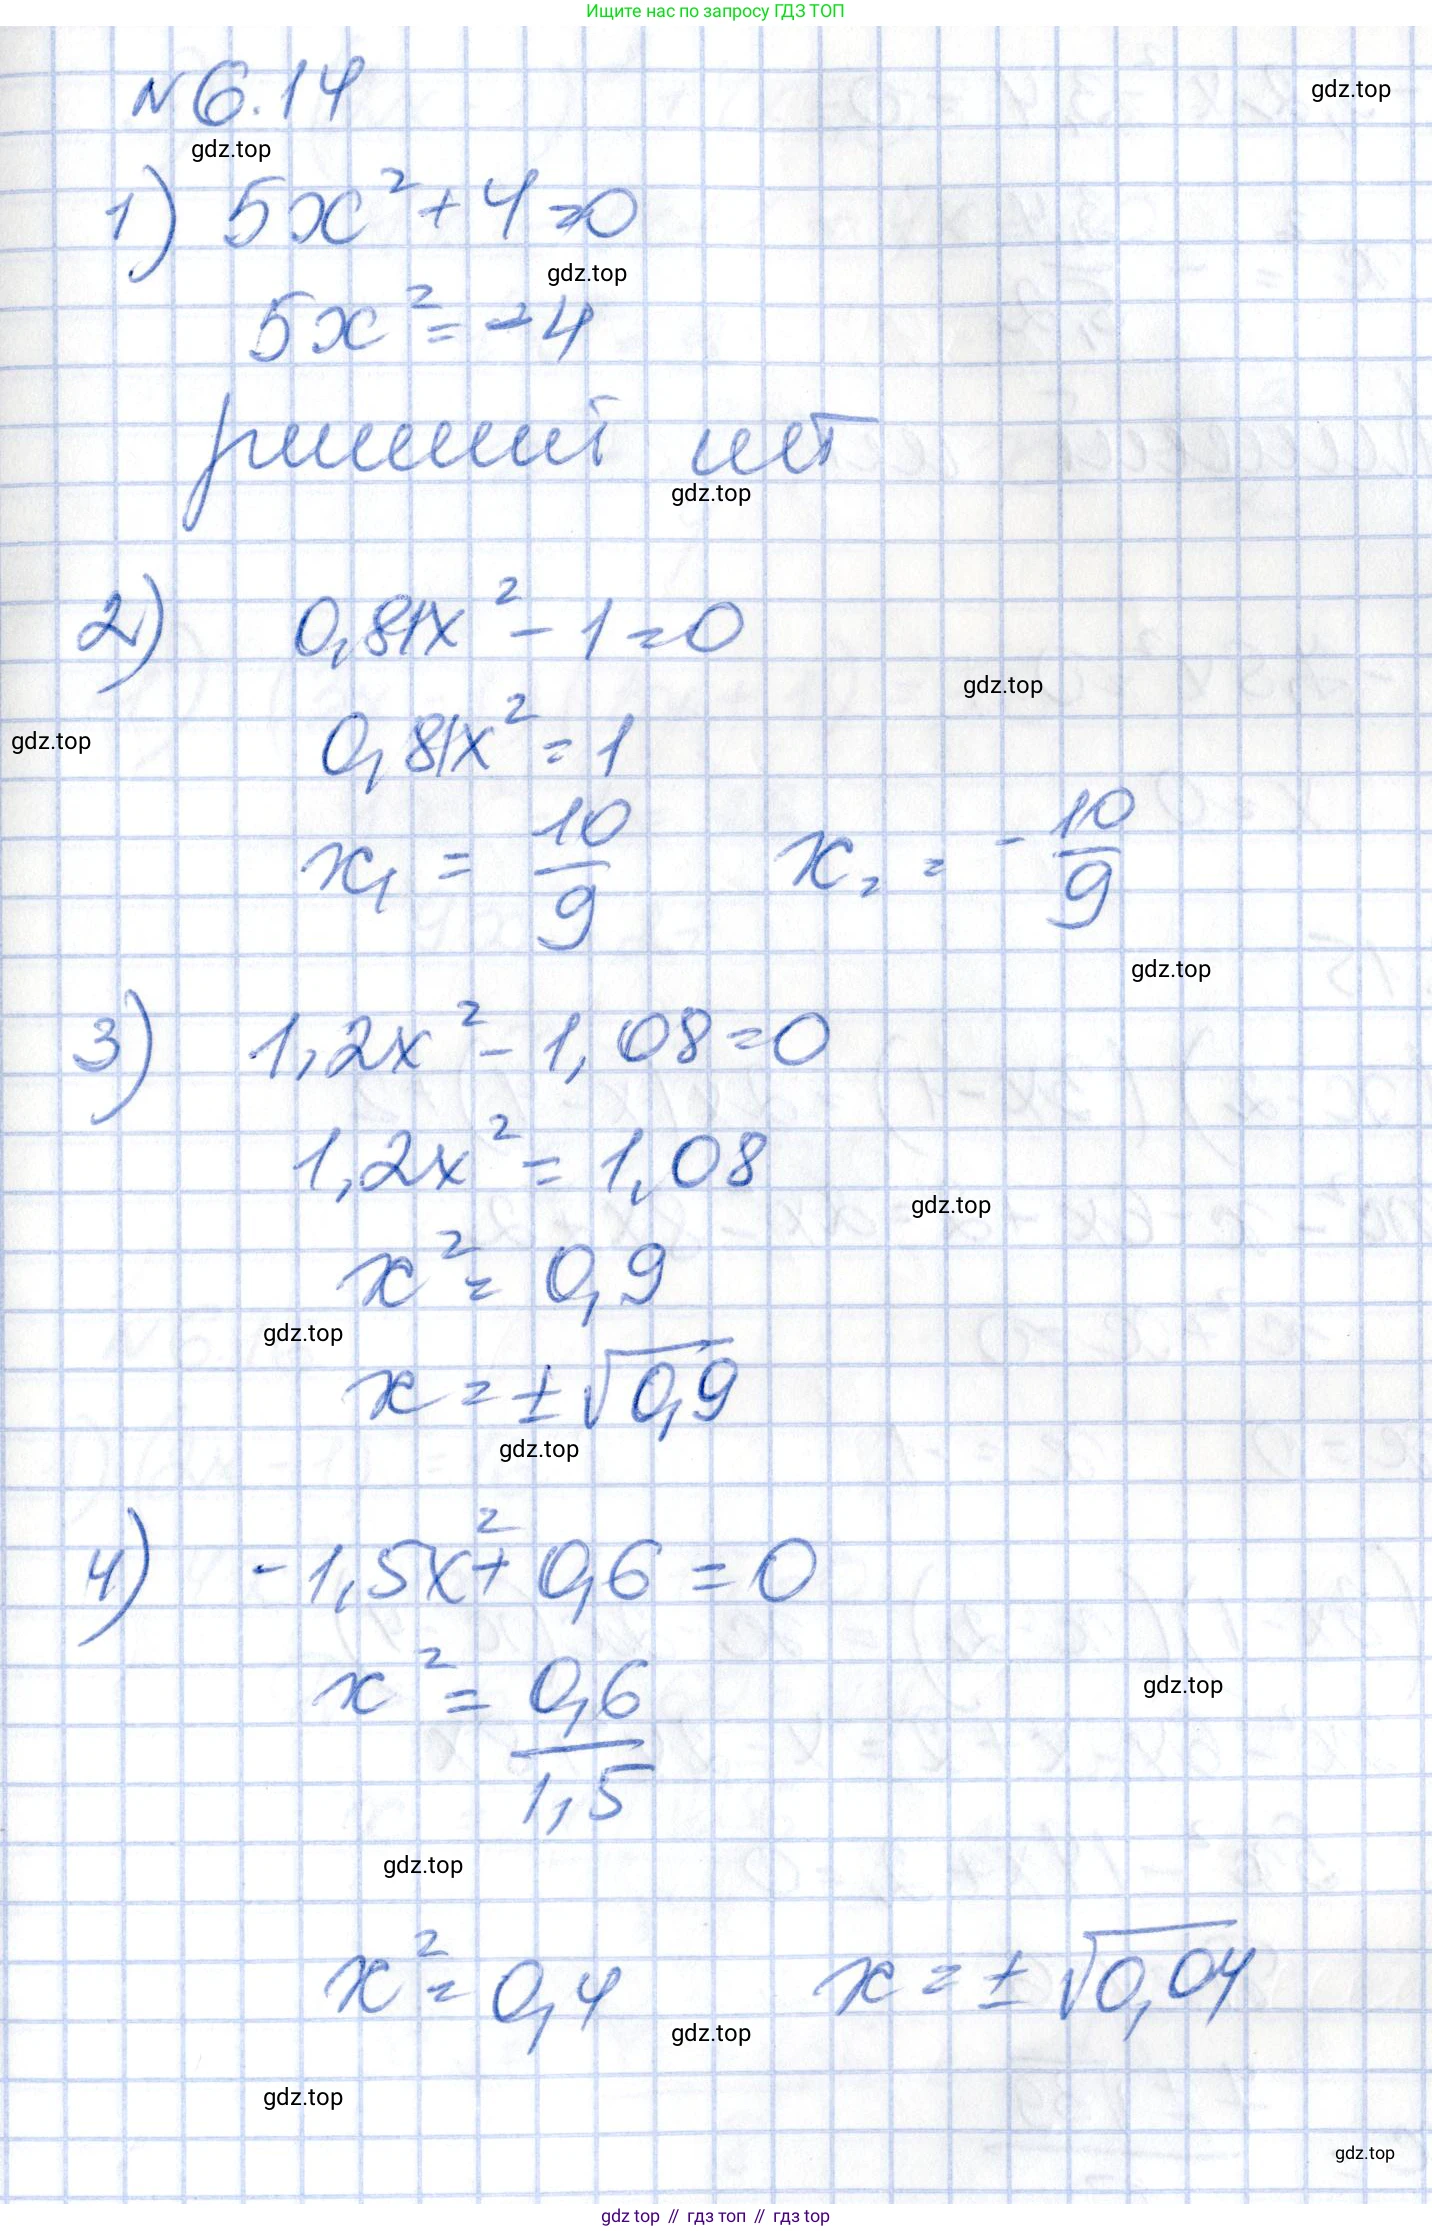 Ищите нас по запросу ГДЗ ТОП
№ 6.14
gdz.top
gdz.top
1) 5x² + 4 = 0
gdz.top
5x² = -4
решений нет
gdz.top
2) 0,81x² - 1 = 0
gdz.top
0,81x² = 1
gdz.top
x₁ = 10/9 x₂ = - 10/9
gdz.top
3) 1,2x² - 1,08 = 0
1,2x² = 1,08
gdz.top
x² = 0,9
gdz.top
x = ± √0,9
gdz.top
4) -1,5x² + 0,6 = 0
x² = 0,6/1,5
gdz.top
gdz.top
x² = 0,4 x = ± √0,04
gdz.top
gdz.top
gdz.top
gdz top // гдз топ // гдз top